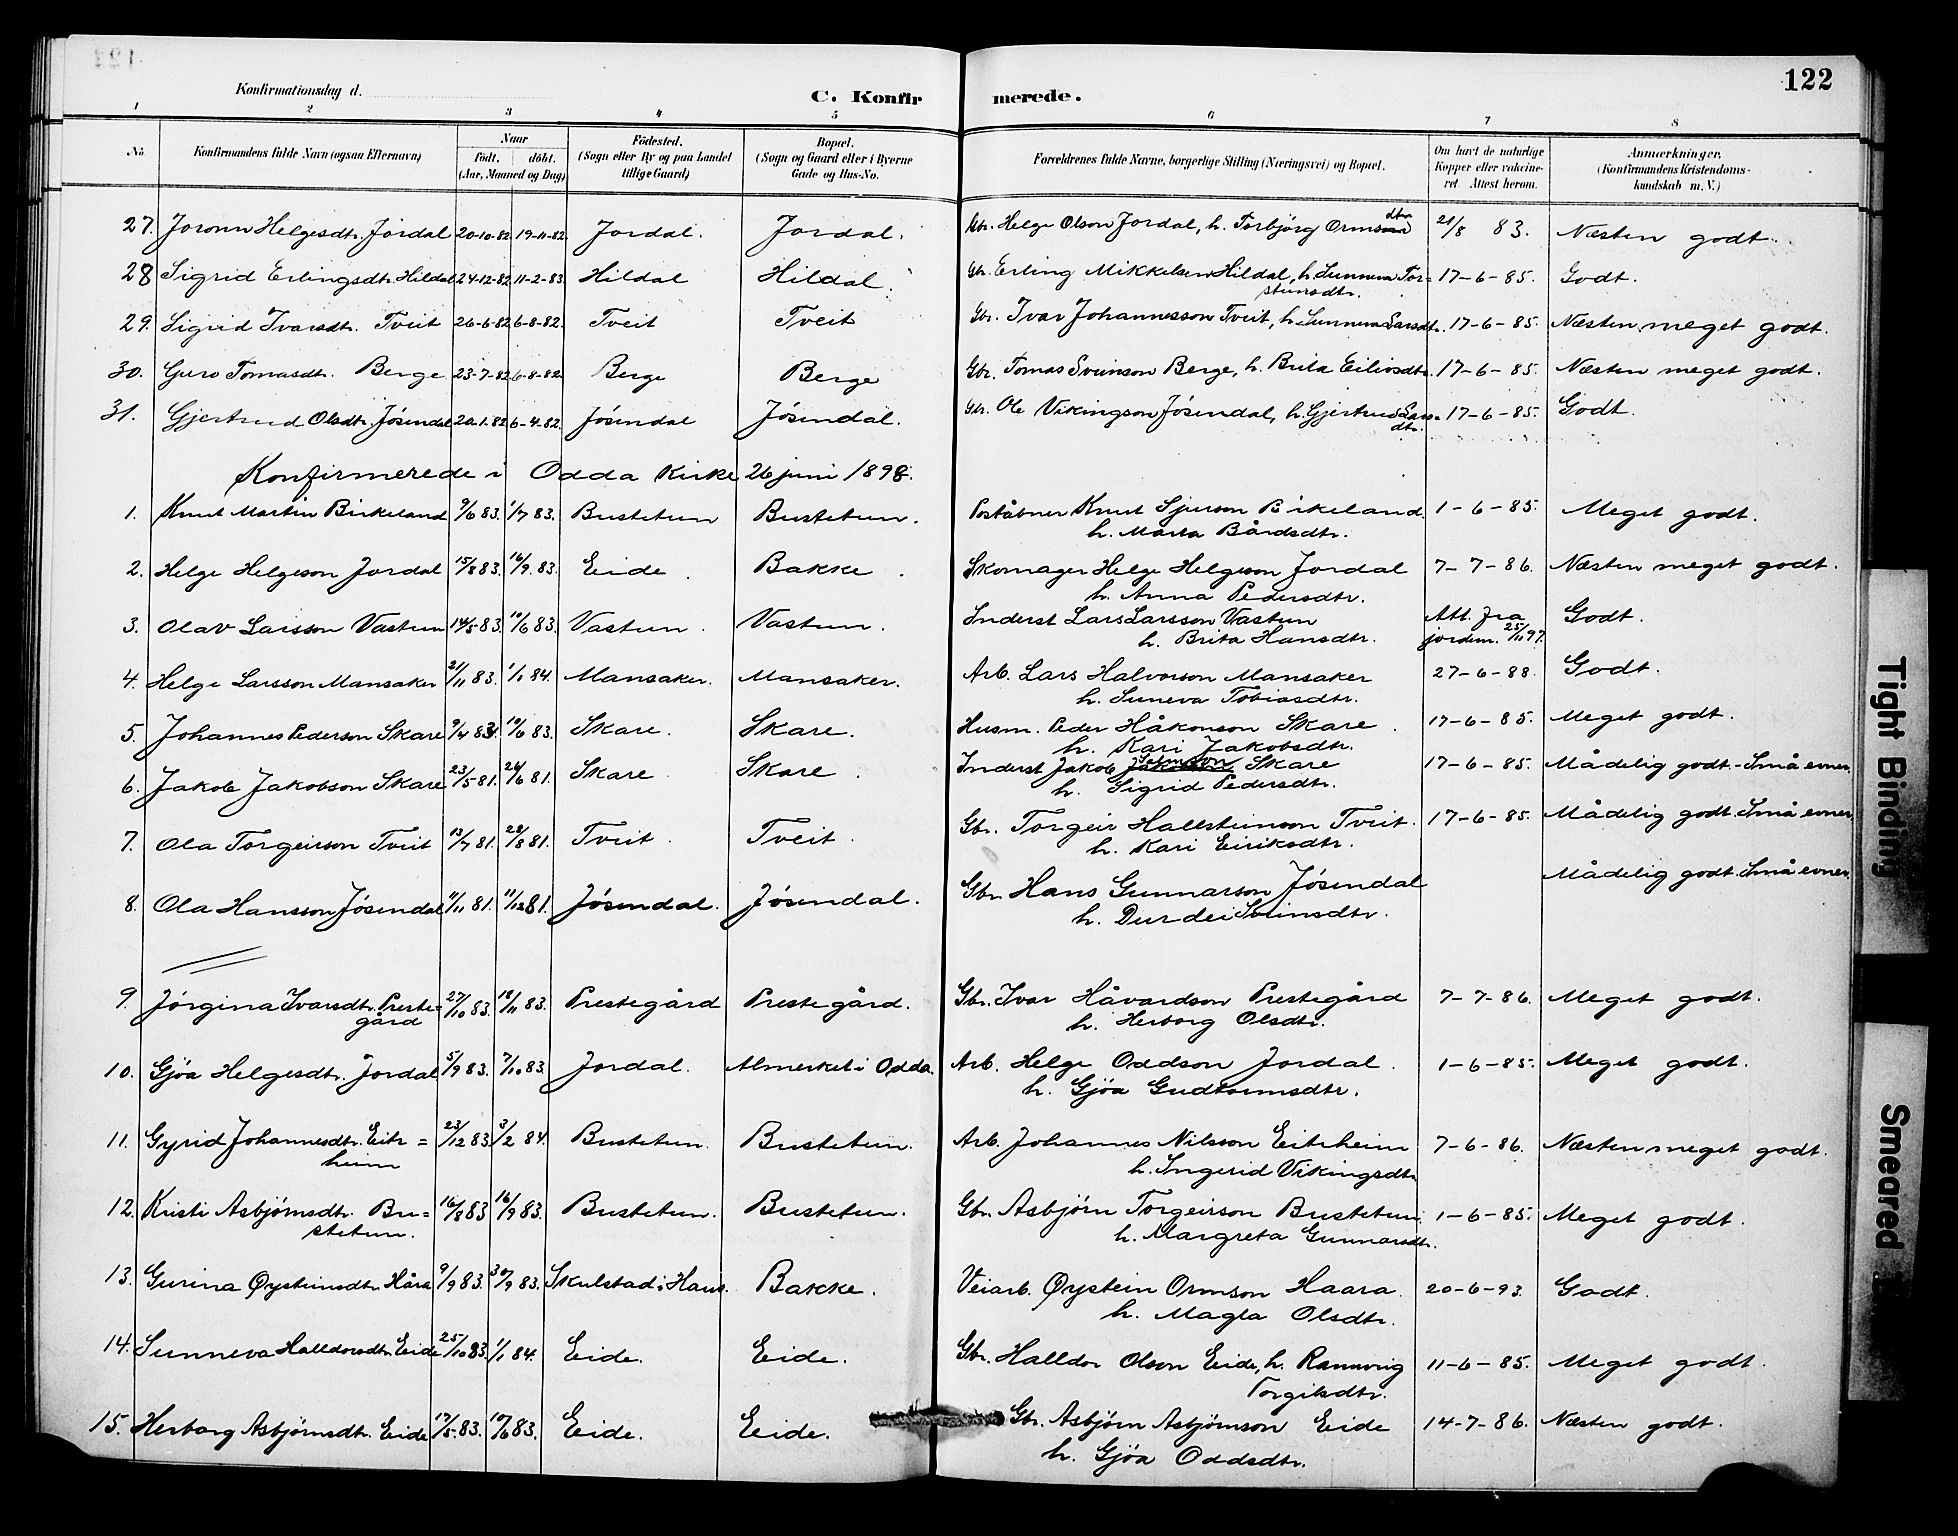 122
Konfirmationsdag d.
C. Konfirmerede.
1 2 3 4 5 6 7 8
No. Konfirmandens fulde Navn (ogsaa Efternavn) Naar födt. döbt. (Aar, Maaned og Dag) Födested. (Sogn eller By og paa Landet tillige Gaard) Bopæl. (Sogn og Gaard eller i Byerne Gade og Hus-No. Forældrenes fulde Navne, borgerlige Stilling (Næringsvei) og Bopæl. Om havt de naturlige Kopper eller vakcineret. Attest herom. Anmærkninger, (Konfirmandens Kristendomskundskab m. V.)
27. Joronn Helgesdtr. Jordal 20-10-82 19-11-82. Jordal. Jordal. Gbr. Helge Olson Jordal, h. Torbjörg Ormsdtr 21/8 83. Næsten godt.
28 Sigrid Erlingsdtr. Hildal 24-12-82 11-2-83. Hildal Hildal. Gbr. Erling Mikkelsen Hildal, h. Sunneva Tor=
steinsdtr. 17-6-85. Godt.
29. Sigrid Ivarsdtr. Tveit 26-6-82 6-8-82. Tveit Tveit Gbr. Ivar Johannesson Tveit, h. Sunneva Larsdtr. 17-6-85. Næsten meget godt.
30. Guro Tomasdtr. Berge 23-7-82 6-8-82 Berge Berge Gbr. Tomas Sveinson Berge, h. Brita Eilivsdtr. 17-6-85. Næsten meget godt.
31. Gjertrud Olsdtr. Jösendal 20-1-82 6-4-82. Jösendal Jösendal. Gbr. Ole Vikingson Jösendal, h. Gjertrud Lars=
dtr. 17-6-85. Godt.
Konfirmerede i Odda Kirke 26 juni 1898.
1. Knut Martin Birkeland 9/6 83. 1/7 83. Bustetun Bustetun. Poståbner Knut Sjurson Birkeland. 1-6-85. Meget godt.
h. Marta Bårdsdtr.
2. Helge Helgeson Jordal 15/8 83. 16/9. 83. Eide. Bakke. Skomager Helge Helgeson Jordal 7-7-86. Næsten meget godt.
h. Anna Pedersdtr.
3. Olav Larsson Vastun 14/5 83. 10/6 83. Vastun. Vastun. Inderst Lars Larsson Vastun Att. fra Godt.
h. Brita Hansdtr. jordm. 25/11 97.
4. Helge Larsson Mansaker 21/11 83. 1/1 84. Mansaker. Mansaker. Arb. Lars Halvorson Mansaker 27-6-88. Godt.
h. Suneva Tobiasdtr.
5. Johannes Pederson Skare 9/4 83. 10/6 83. Skare. Skare. Husm. Peder Håkonson Skare. 17-6-85. Meget godt.
h. Kari Jakobsdtr.
6. Jakob Jakobson Skare 23/5 81. 26/6 81. Skare. Skare. Inderst Jakob Skare 17-6-85. Mådelig godt. - Små evner.
h. Sigrid Pedersdtr.
7. Ola Torgeirson Tveit 13/7 81. 28/8 81. Tveit. Tveit. Gbr. Torgeir Hallsteinson Tveit. 17-6-85. Mådelig godt. Små evner.
h. Kari Eiriksdtr.
8. Ola Hansson Jösendal 11/11 81. 11/12 81. Jösendal. Jösendal. Gbr. Hans Gunnarson Jösendal Mådelig godt. Små evner.
h. Durdei Sveinsdtr.
9. Jörgina Ivarsdtr. Preste=
gård 27/10 83. 18/11 83. Prestegård Prestegård. Gbr. Ivar Håvardson Prestegård 7-7-86. Meget godt.
h. Herborg Olsdtr.
10. Gjöa Helgesdtr. Jordal 5/9 83. 7/10 83. Jordal. Almerket i Odda. Arb. Helge Oddson Jordal. 1-6-85. Meget godt.
h. Gjöa Gudtormsdtr.
11. Gyrid Johannesdtr. Eitr=
heim 23/12 83. 3/2 84. Bustetun. Bustetun. Arb. Johannes Nilsson Eitrheim 7-6-86. Næsten meget godt.
h. Ingerid Vikingsdtr
12. Kristi Asbjörnsdtr. Bu=
stetun. 16/8 83 16/9 83. Bustetun. Bustetun. Gbr. Asbjörn Torgeirson Bustetun. 1-6-85. Meget godt.
h. Margreta Gunnarsdtr.
13. Gurina Öysteinsdtr. Håra 9/9 83. 30/9 83. Skulstad i Haus. Bakke. Veiarb. Öystein Ormson Haara. 20-6-93. Godt.
h. Magla Olsdtr.
14. Sunneva Halldorsdtr. Eide 25/10 83. 1/1 84. Eide. Eide. Gbr. Halldor Olson Eide, h. Rannveig 11-6-85. Meget godt.
Torgilsdtr.
15. Herborg Asbjörnsdtr. Eide 17/5 83. 10/6 83. Eide. Eide. Gbr. Asbjörn Asbjörnson Eide 14-7-86. Næsten godt.
h. Gjöa Oddsdtr.
Tight Binding
Smeared